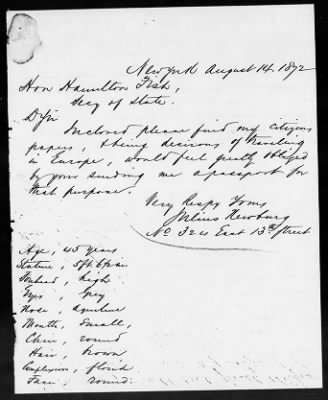 New York August 14. 1872
Hon Hamilton Fish,
Secy of State.
D Sir
Inclosed please find my citizens
papers, & being desirous of traveling
in Europe, would feel greatly obliged
by your sending me a passport for
that purpose.
Very Respy Yours
Julius Newburg
No 324 East 13th Street
Age, 45 years
Stature, 5 ft 6
Forehead, high
Eyes, Grey
Nose, aquiline
Mouth, Small,
Chin, round
Hair, brown
Complexion, florid
Face round.